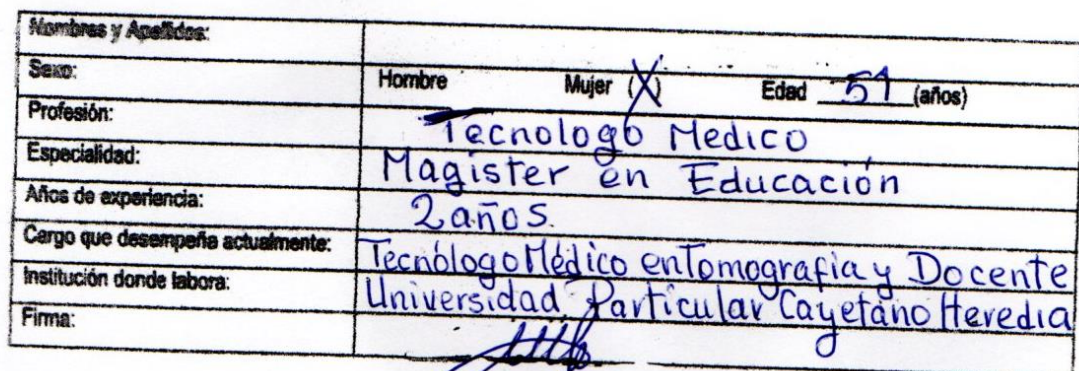 Nombres y Apellidos:
Sexo: Hombre Mujer (X) Edad 51 (años)
Profesión: Tecnologo Medico
Especialidad: Magister en Educación
Años de experiencia: 2 años.
Cargo que desempeña actualmente: Tecnólogo Médico en Tomografia y Docente
Institución donde labora: Universidad Particular Cayetano Heredia
Firma: